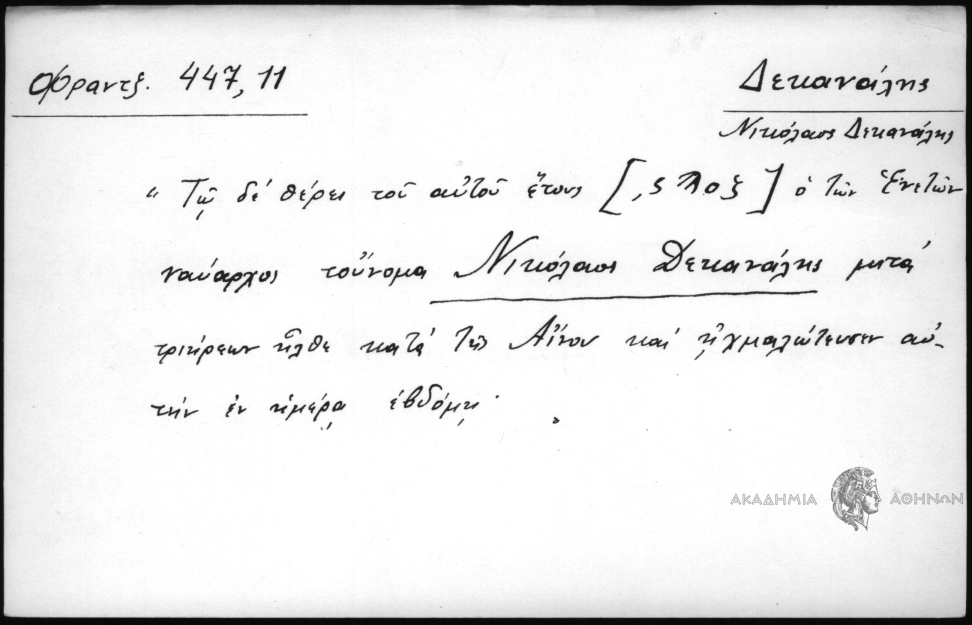 Φραντζ. 447, 11
Δεκανάλης
Νικόλαος Δεκανάλης
" Τῷ δέ θέρει τοῦ αὐτοῦ ἔτους [,ςλοξ] ὁ τῶν Ἑνετῶν
ναύαρχος τοὔνομα Νικόλαος Δεκανάλης μετά
τριήρεων ἦλθε κατά τῆς Αἴνου καί ᾐχμαλώτευσεν αὐ-
τήν ἐν ἡμέρᾳ ἑβδόμῃ
ΑΚΑΔΗΜΙΑ ΑΘΗΝΩΝ